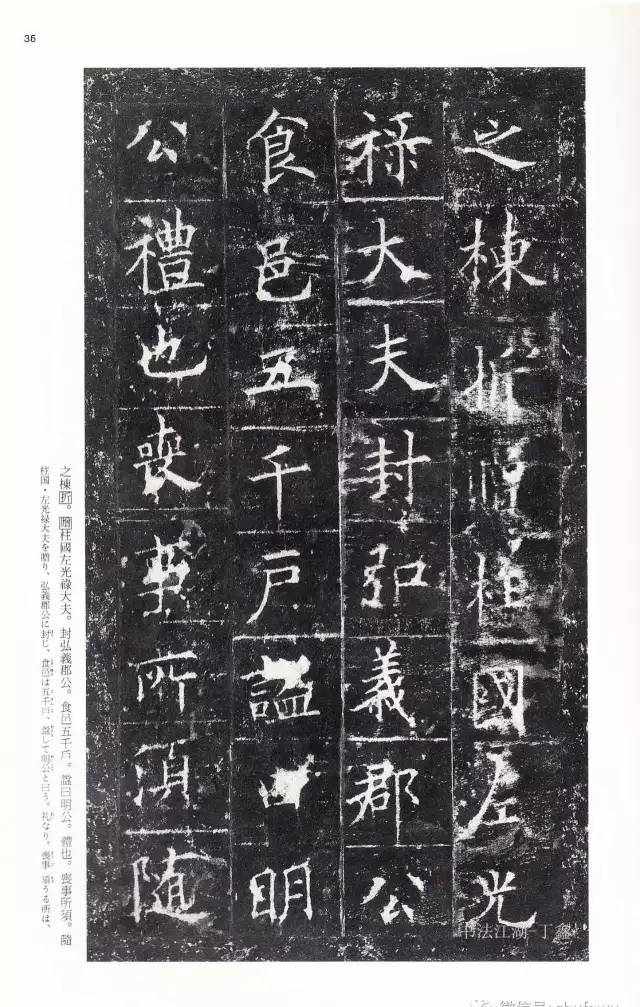 36
之棟折贈柱國左光
祿大夫封弘義郡公
食邑五千戶謚曰明
公禮也喪事所須隨
之棟折。贈柱國左光祿大夫。封弘義郡公。食邑五千戶。謚曰明公。禮也。喪事所須。隨
柱国・左光禄大夫を贈り、弘義郡公に封じ、食邑は五千戸、謚して明公と曰う。礼なり。喪事 須うる所は、
法江湖-丁
微信号: